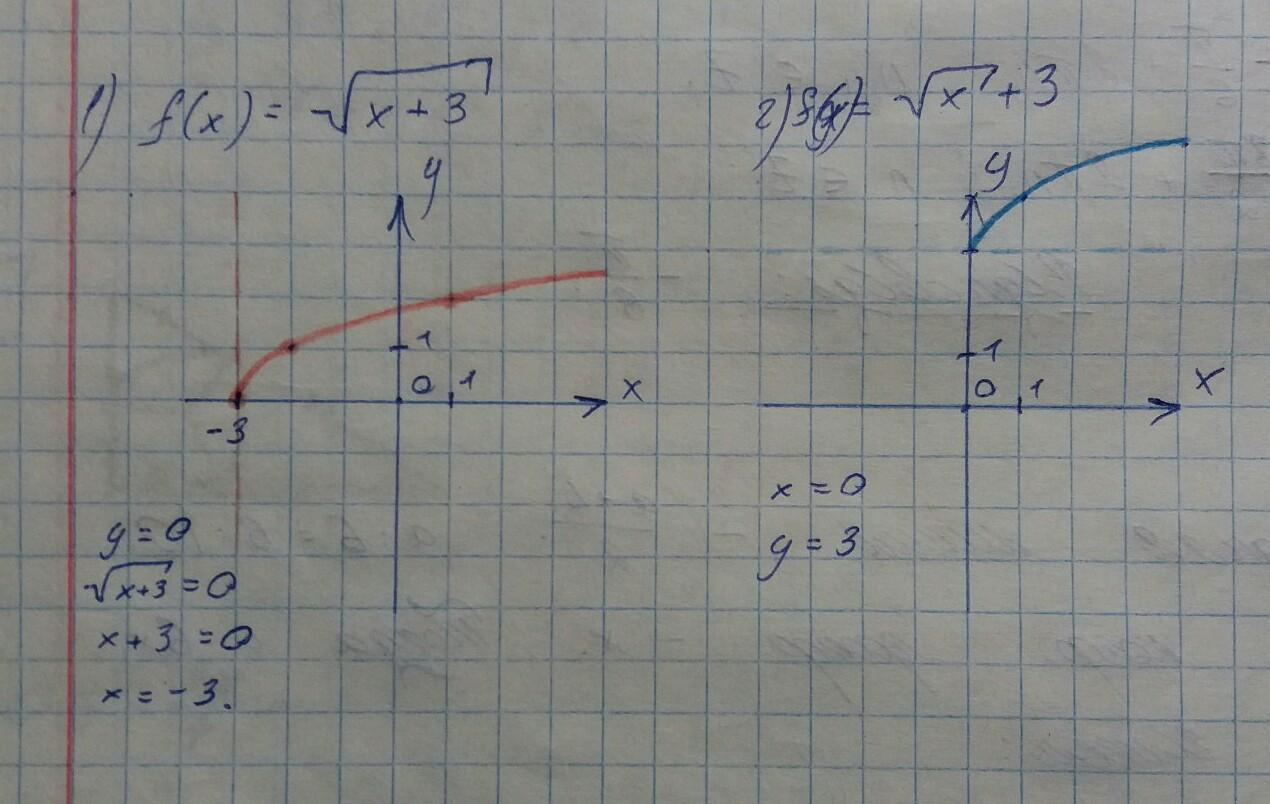 1) f(x) = √(x + 3)
y
1
0 1 x
-3
y = 0
√(x+3) = 0
x + 3 = 0
x = -3.
2) f(x) = √x + 3
y
1
0 1 x
x = 0
y = 3